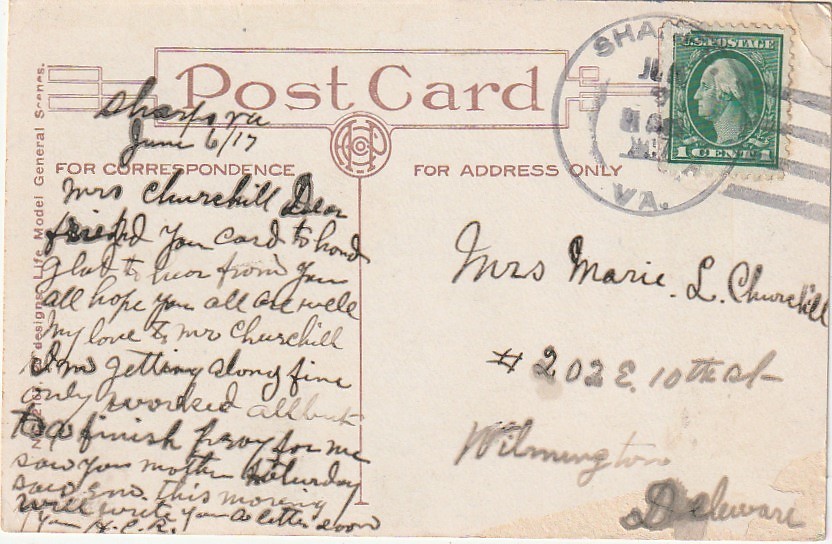 Post Card
FOR CORRESPONDENCE
FOR ADDRESS ONLY
Life Model General Scenes.
designs
SHA
JUN
VA.
U.S. POSTAGE
1 CENT 1
Sharps va
June 6/17
Mrs Churchill Dear
friend your card to hand
glad to hear from you
all hope you all are well
my love to Mr Churchill
I'm getting along fine
only worked all but
to a finish pray for me
saw your mother Saturday
saw this morning
will write you a letter soon
your H.C.R.
Mrs Marie. L. Churchill
# 202 E. 10th st
Wilmington
Deleware